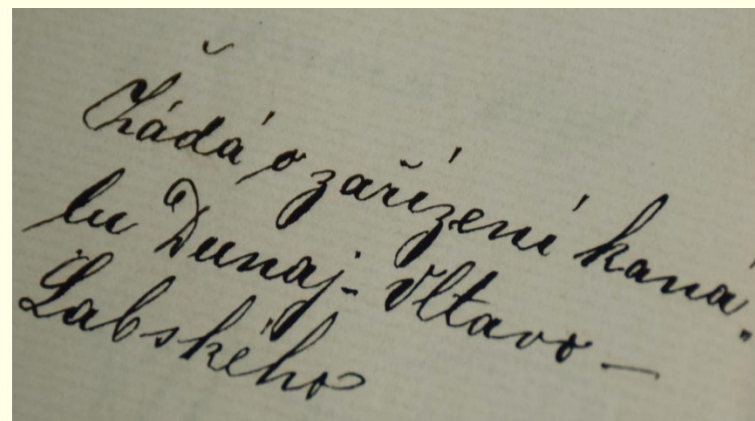 Žádá o zařízení kaná-
lu Dunaj-Vltavo-
Labského